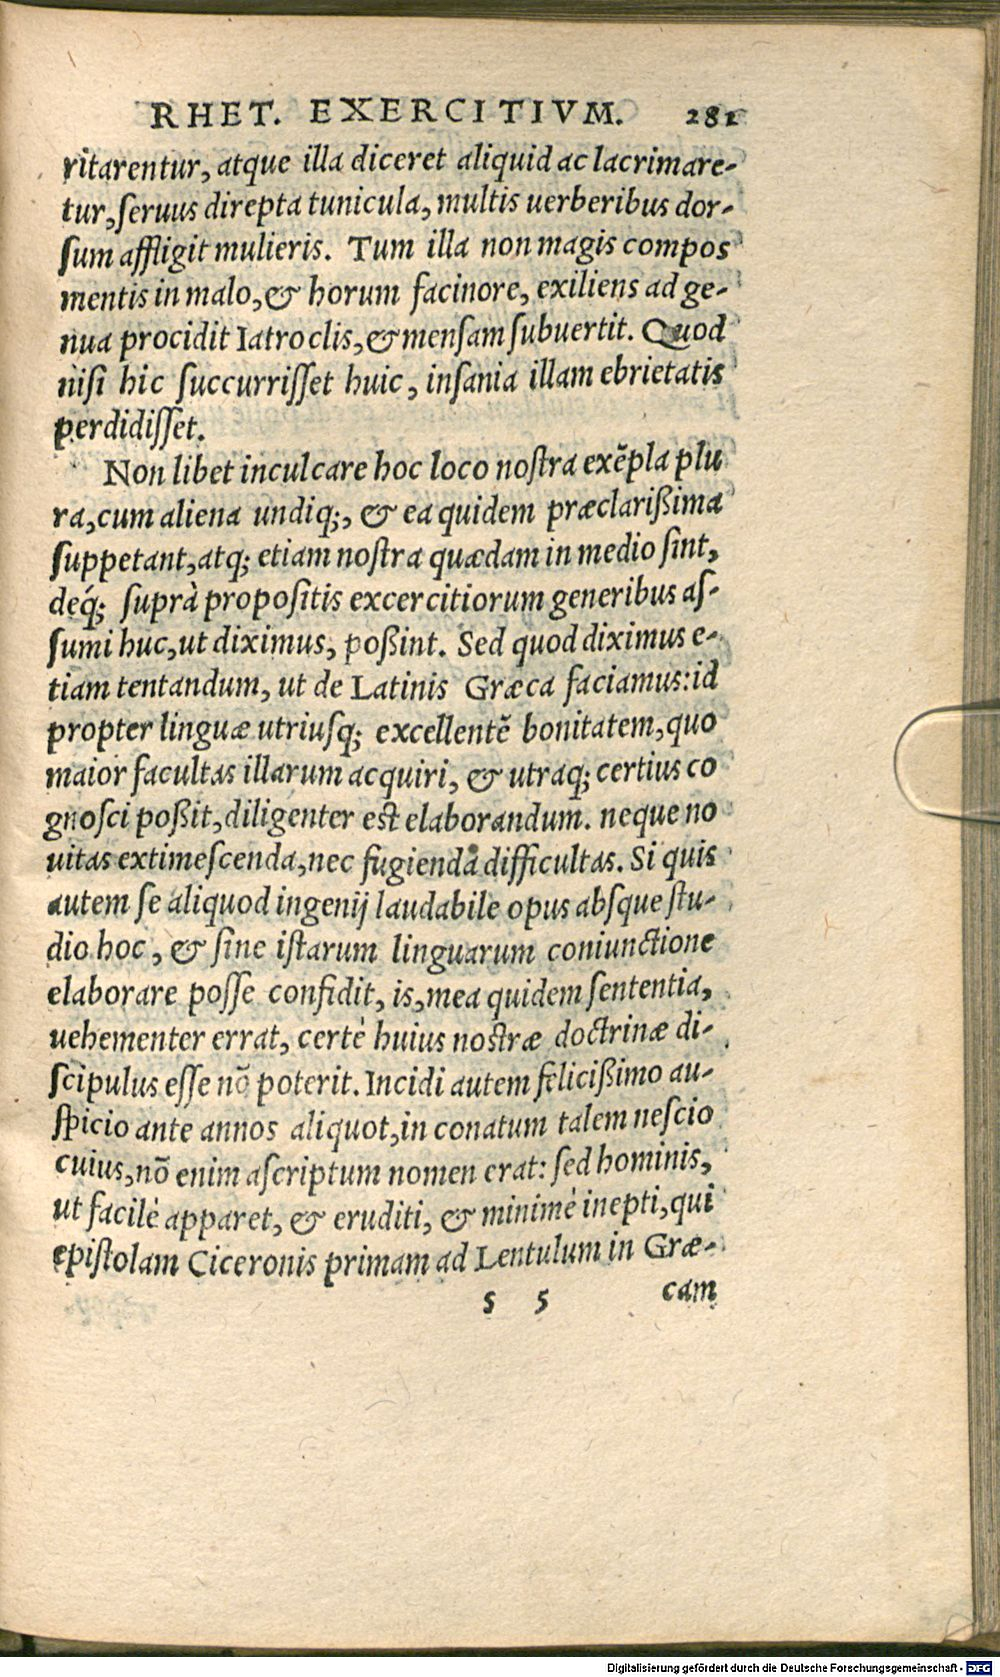 RHET. EXERCITIVM. 281
ritarentur, atque illa diceret aliquid ac lacrimare-
tur, ſeruus direpta tunicula, multis uerberibus dor-
ſum affligit mulieris. Tum illa non magis compos
mentis in malo, & horum facinore, exiliens ad ge-
nua procidit Iatroclis, & menſam ſubuertit. Quod
niſi hic ſuccurriſſet huic, inſania illam ebrietatis
perdidiſſet.
Non libet inculcare hoc loco noſtra exẽpla plu
ra, cum aliena undiq;, & ea quidem præclarißima
ſuppetant, atq; etiam noſtra quædam in medio ſint,
deq́; ſuprà propoſitis excercitiorum generibus aſ-
ſumi huc, ut diximus, poßint. Sed quod diximus e-
tiam tentandum, ut de Latinis Græca faciamus: id
propter linguæ utriuſq; excellentẽ bonitatem, quo
maior facultas illarum acquiri, & utraq; certius co
gnoſci poßit, diligenter eſt elaborandum. neque no
uitas extimeſcenda, nec fugienda difficultas. Si quis
autem ſe aliquod ingenij laudabile opus abſque ſtu-
dio hoc, & ſine iſtarum linguarum coniunctione
elaborare poſſe confidit, is, mea quidem ſententia,
uehementer errat, certè huius noſtræ doctrinæ di-
ſcipulus eſſe nõ poterit. Incidi autem felicißimo au-
ſpicio ante annos aliquot, in conatum talem neſcio
cuius, nõ enim aſcriptum nomen erat: ſed hominis,
ut facilè apparet, & eruditi, & minimè inepti, qui
epiſtolam Ciceronis primam ad Lentulum in Græ-
s 5 cam
Digitalisierung gefördert durch die Deutsche Forschungsgemeinschaft - DFG